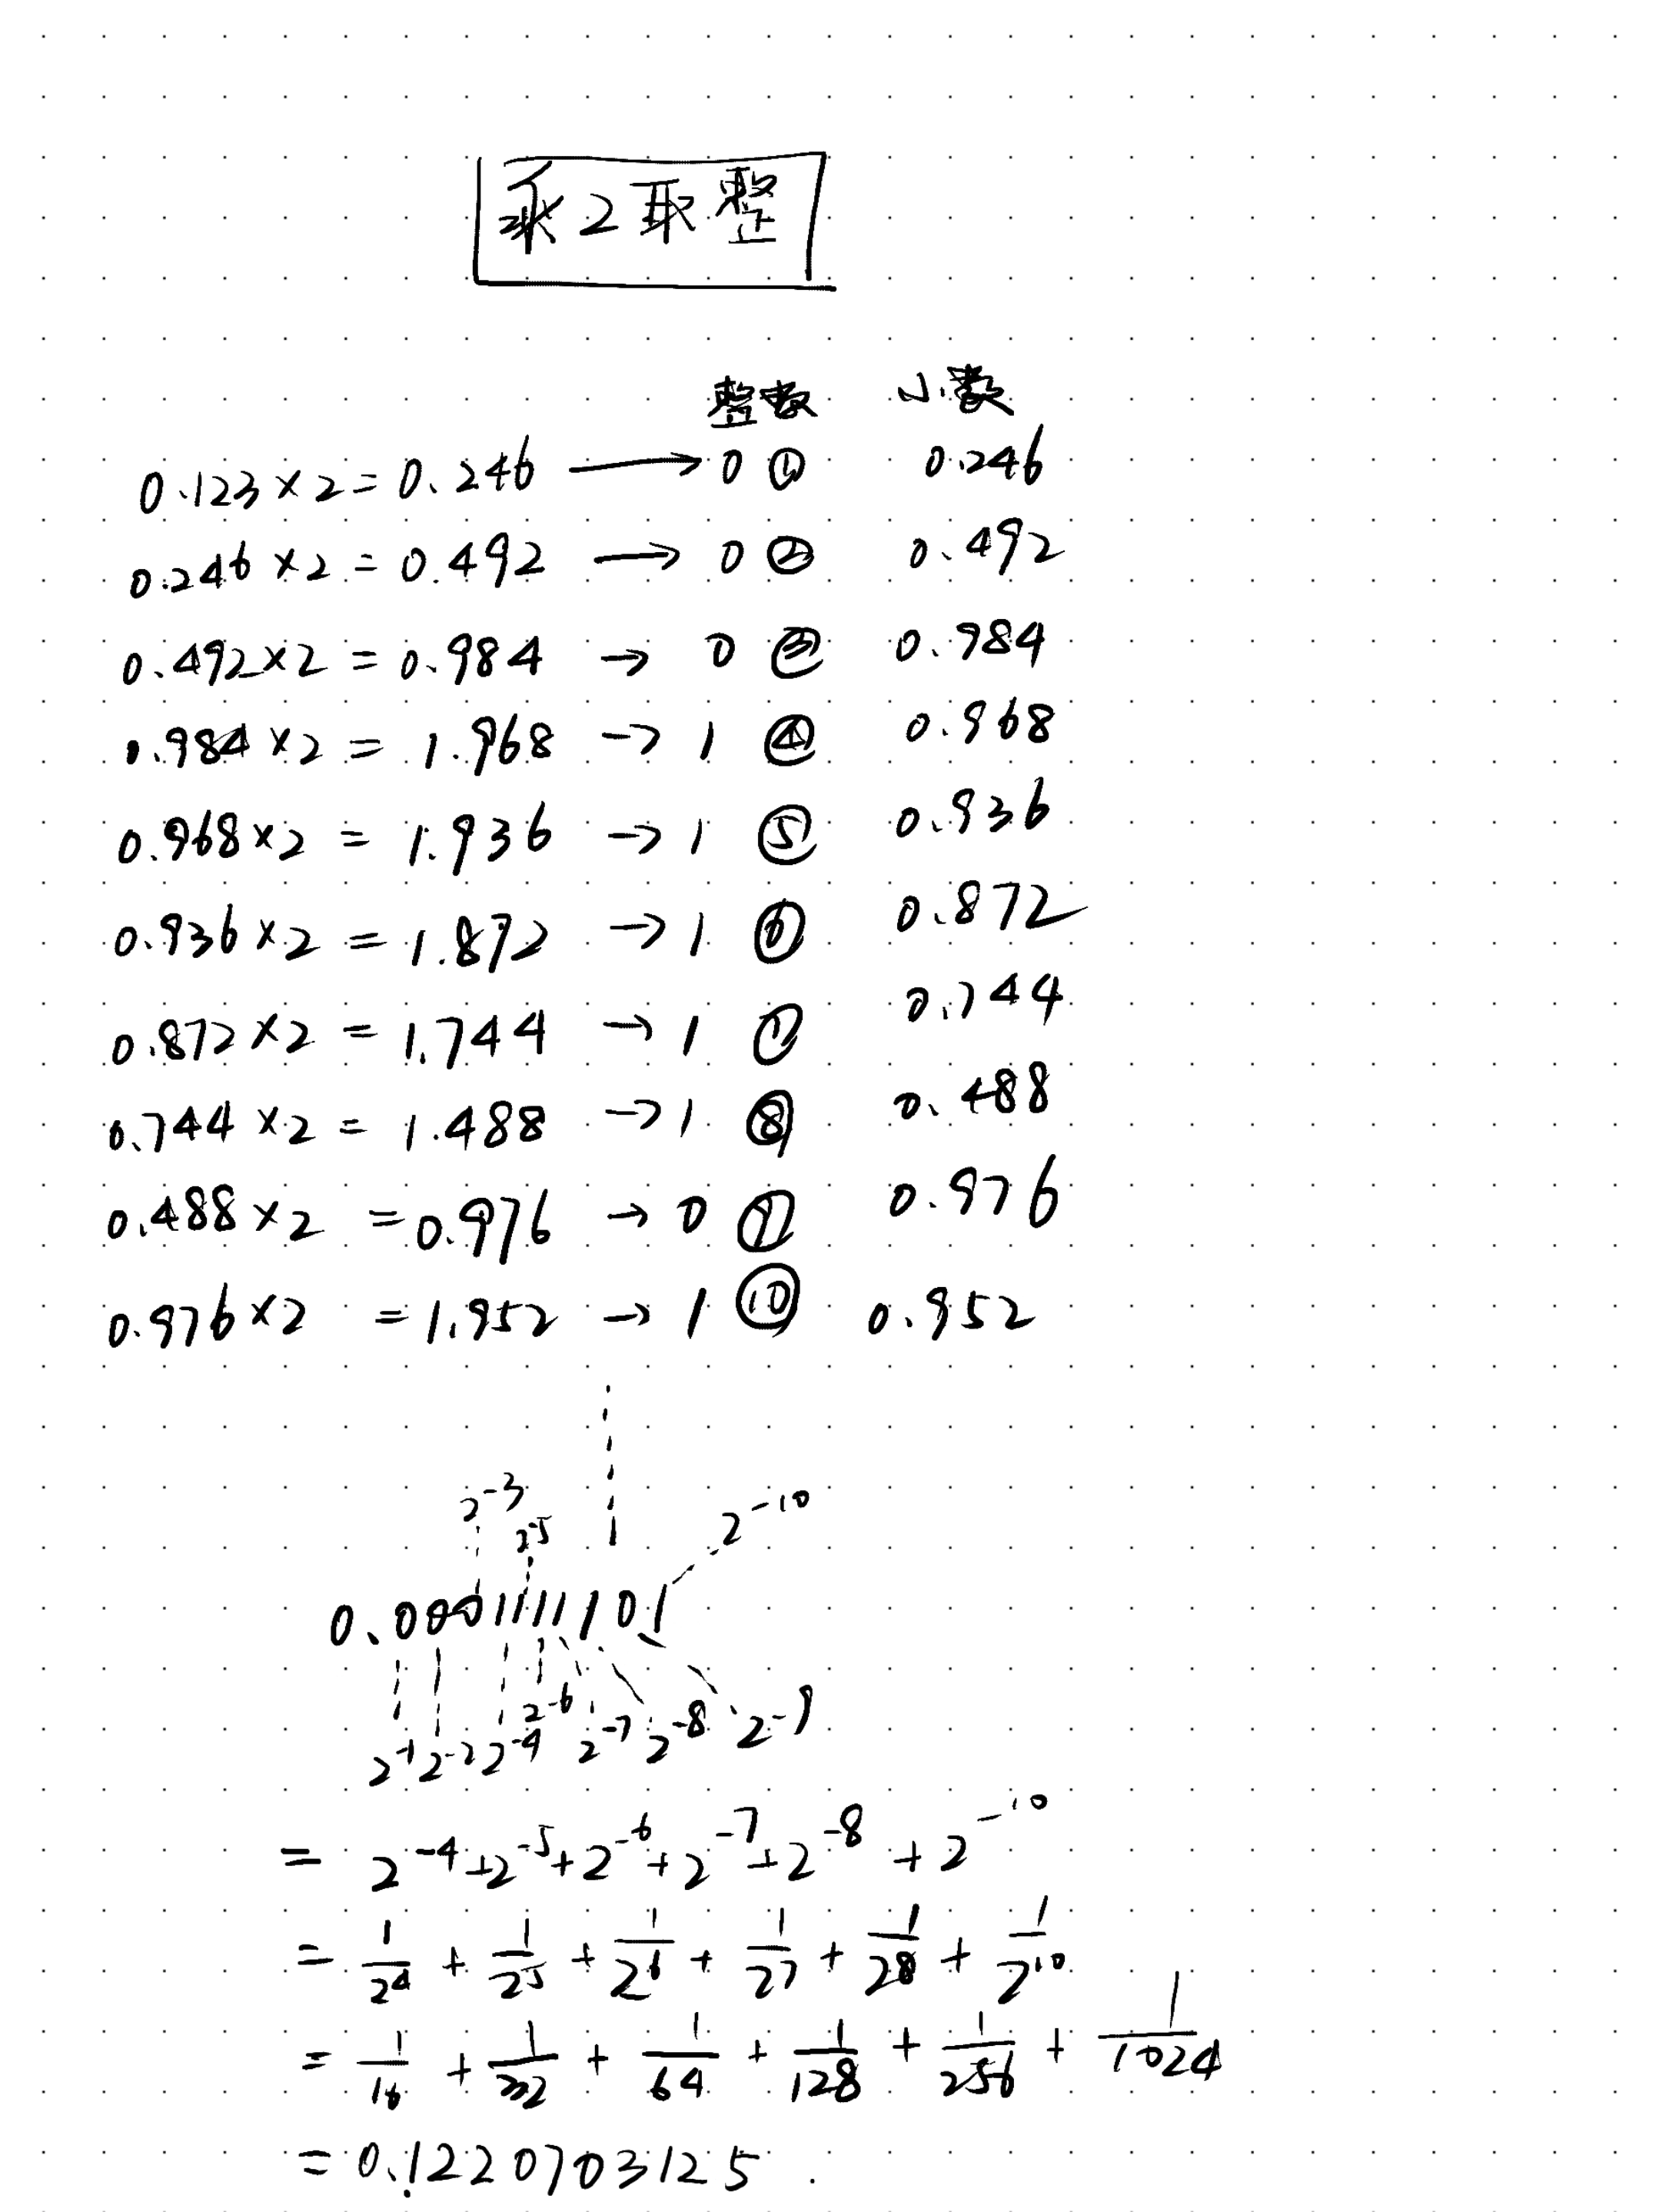 乘2取整
整数 小数
0.123×2=0.246 → 0 ① 0.246
0.246×2=0.492 → 0 ② 0.492
0.492×2=0.984 → 0 ③ 0.984
0.984×2=1.968 → 1 ④ 0.968
0.968×2=1.936 → 1 ⑤ 0.936
0.936×2=1.872 → 1 ⑥ 0.872
0.872×2=1.744 → 1 ⑦ 0.744
0.744×2=1.488 → 1 ⑧ 0.488
0.488×2=0.976 → 0 ⑨ 0.976
0.976×2=1.952 → 1 ⑩ 0.952
2⁻³ 2⁻⁵ 2⁻¹⁰
0.0001111101
2⁻¹ 2⁻² 2⁻⁴ 2⁻⁶ 2⁻⁷ 2⁻⁸ 2⁻⁹
= 2⁻⁴+2⁻⁵+2⁻⁶+2⁻⁷+2⁻⁸+2⁻¹⁰
= 1/2⁴ + 1/2⁵ + 1/2⁶ + 1/2⁷ + 1/2⁸ + 1/2¹⁰
= 1/16 + 1/32 + 1/64 + 1/128 + 1/256 + 1/1024
= 0.1220703125